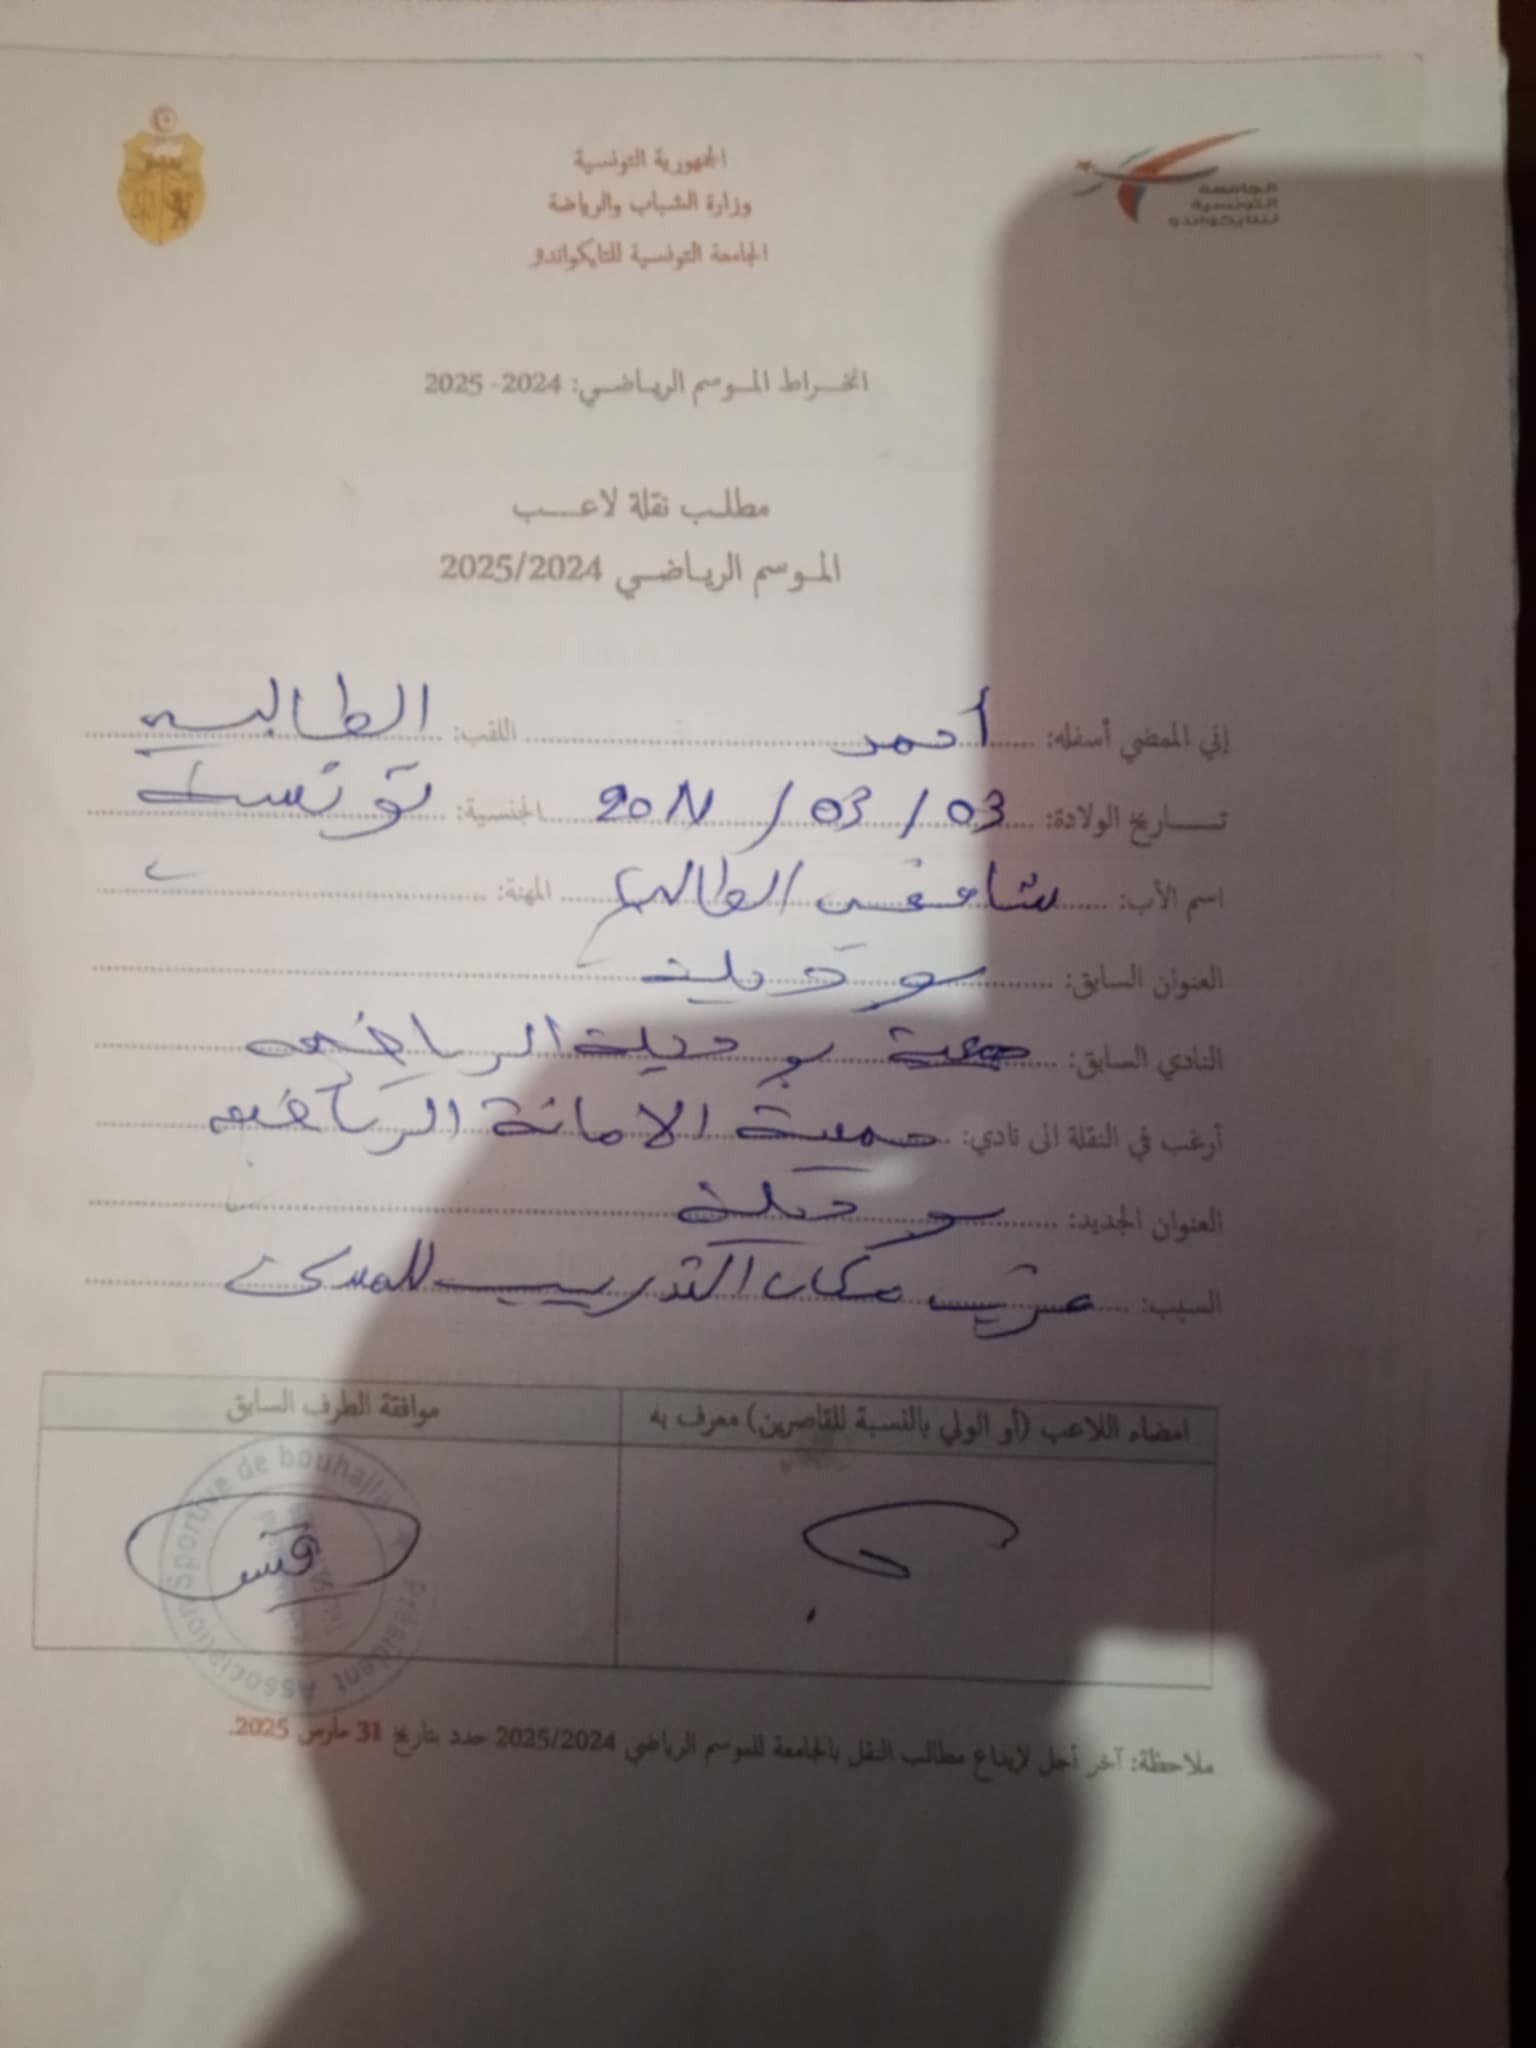 الجمهورية التونسية
وزارة الشباب والرياضة
الجامعة التونسية للتايكواندو
الجامعة
التونسية
للتايكواندو
انخراط الموسم الرياضي: 2024- 2025
مطلب نقلة لاعب
الموسم الرياضي 2025/2024
إني الممضي أسفله: أحمد اللقب: الطالبي
تاريخ الولادة: 03 / 03 / الجنسية: تونسية
اسم الأب: الطالبي المهنة:
العنوان السابق: بوحجلة
النادي السابق: جمعية بوحجلة الرياضية
أرغب في النقلة الى نادي: جمعية الامانة الرياضية
العنوان الجديد: بوحجلة
السبب: مكان التدريب
امضاء اللاعب (أو الولي بالنسبة للقاصرين) معرف به
موافقة الطرف السابق
Association Sportive de bouhajla
President
ملاحظة: آخر أجل لإيداع مطالب النقل بالجامعة للموسم الرياضي 2025/2024 حدد بتاريخ 31 مارس 2025.